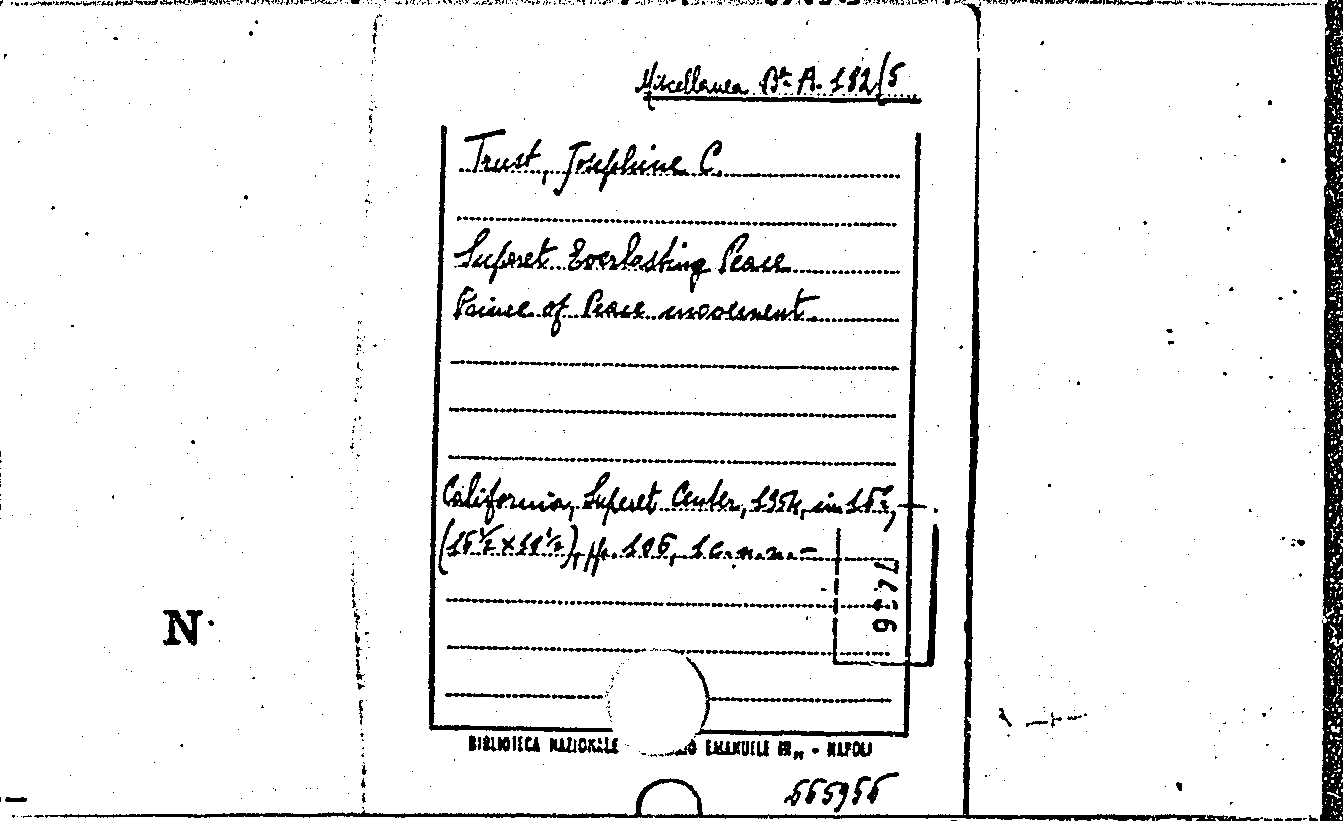 Miscellanea Bta A. 182/5
Trust, Josephine C.
Superet Everlasting Peace
Prince of Peace movement.
California, Superet Center, in
(16½ × 11½), pp. 106, 1 c. n. n. –
N
BIBLIOTECA NAZIONALE EMANUELE III - NAPOLI